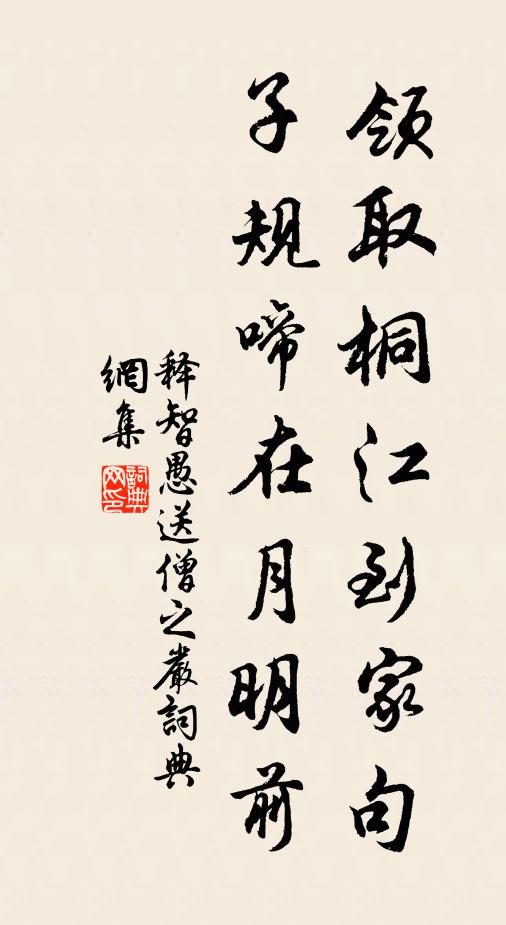 领取桐江到家句
子规啼在月明前
释智愚送僧之嚴詞典
網集
詞典
网印